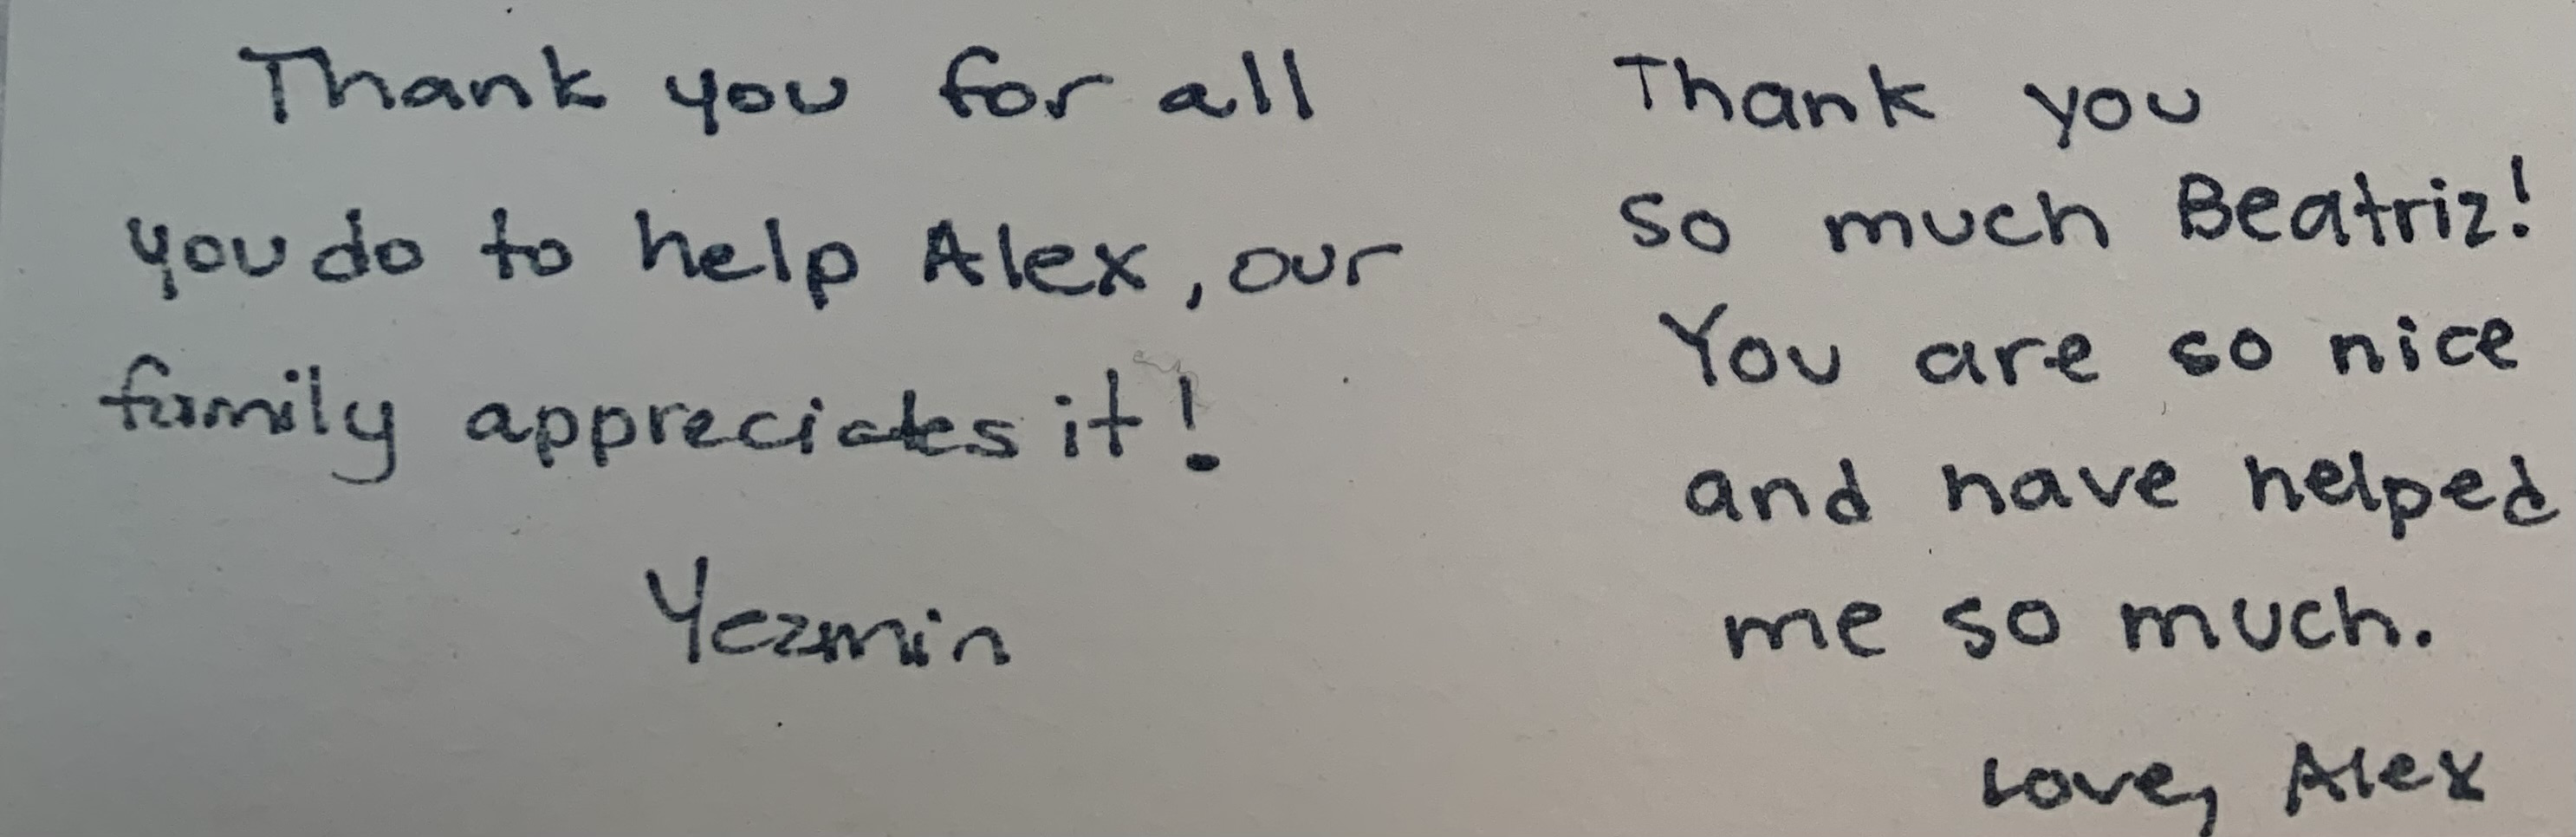 Thank you for all
you do to help Alex, our
family appreciates it!
Yezmin
Thank you
so much Beatriz!
You are so nice
and have helped
me so much.
Love, Alex